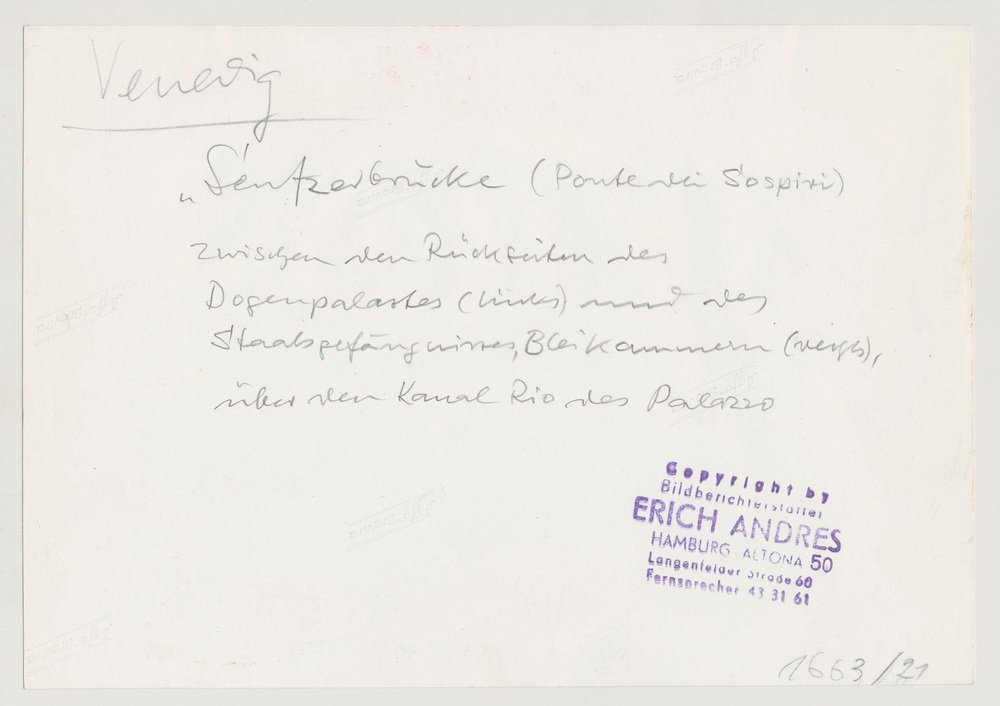 Venedig
„Seufzerbrücke (Ponte dei Sospiri)
zwischen den Rückseiten des
Dogenpalastes (links) und des
Staatsgefängnisses, Bleikammern (rechts),
über den Kanal Rio des Palazzo
Copyright by
Bildberichterstatter
ERICH ANDRES
HAMBURG-ALTONA 50
Langenfelder Straße 60
Fernsprecher 43 31 61
1663/21